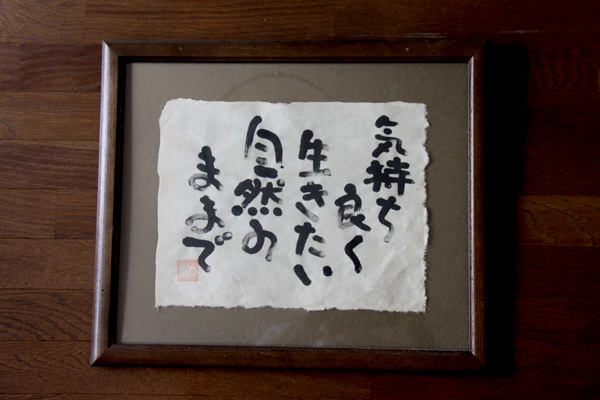 気持ち
良く
生きたい
自然の
ままで